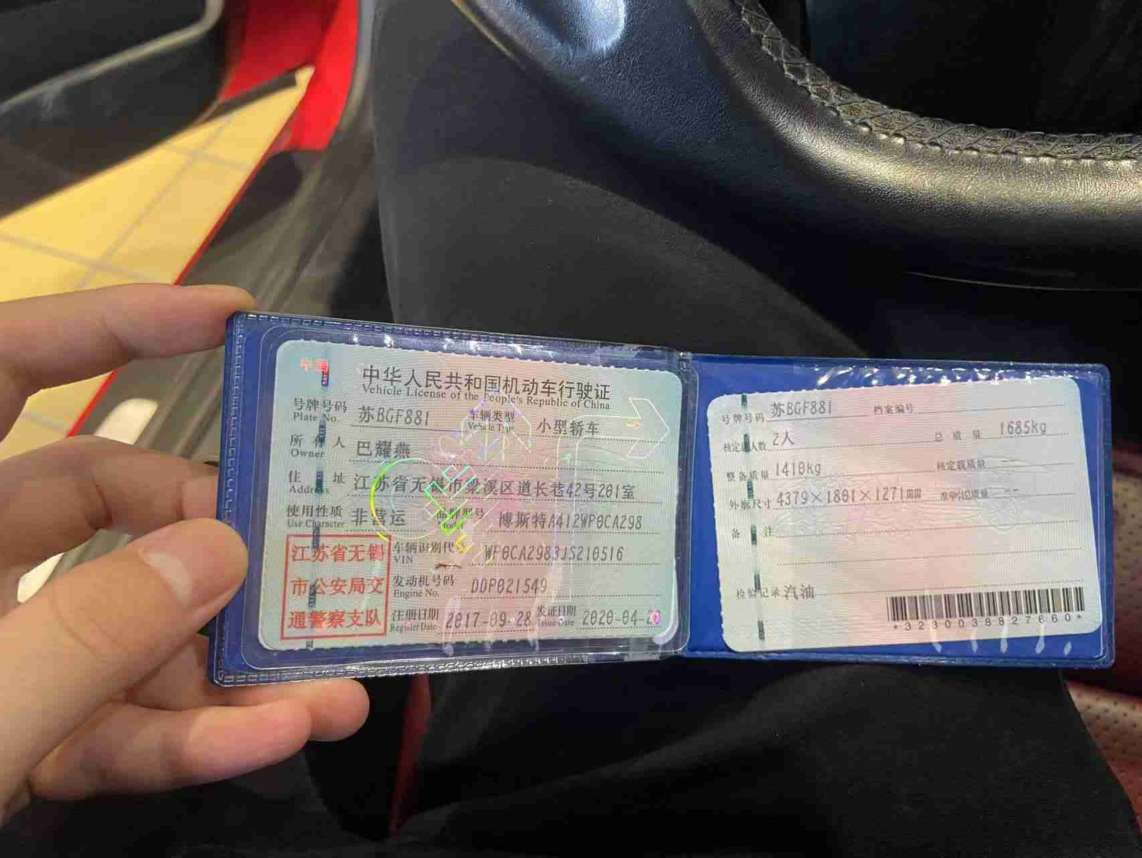 中国
中华人民共和国机动车行驶证
Vehicle License of the People's Republic of China
号牌号码 苏BGF881 车辆类型 小型轿车
Plate No. Vehicle Type
所有人 巴耀燕
Owner
住址 江苏省无锡市梁溪区道长巷42号201室
Address
使用性质 非营运 品牌型号 博斯特A412WP0CA298
Use Character
江苏省无锡
市公安局交
通警察支队
车辆识别代号 WF0CA2983JS210516
VIN
发动机号码 DDP021549
Engine No.
注册日期 2017-09-28 发证日期 2020-04-2
Register Date Issue Date
号牌号码 苏BGF881 档案编号
核定载人数 2人 总质量 1685kg
整备质量 1410kg 核定载质量 --
外廓尺寸 4379×1801×1271mm 准牵引总质量 --
备注
检验记录 汽油
*3230038827660*